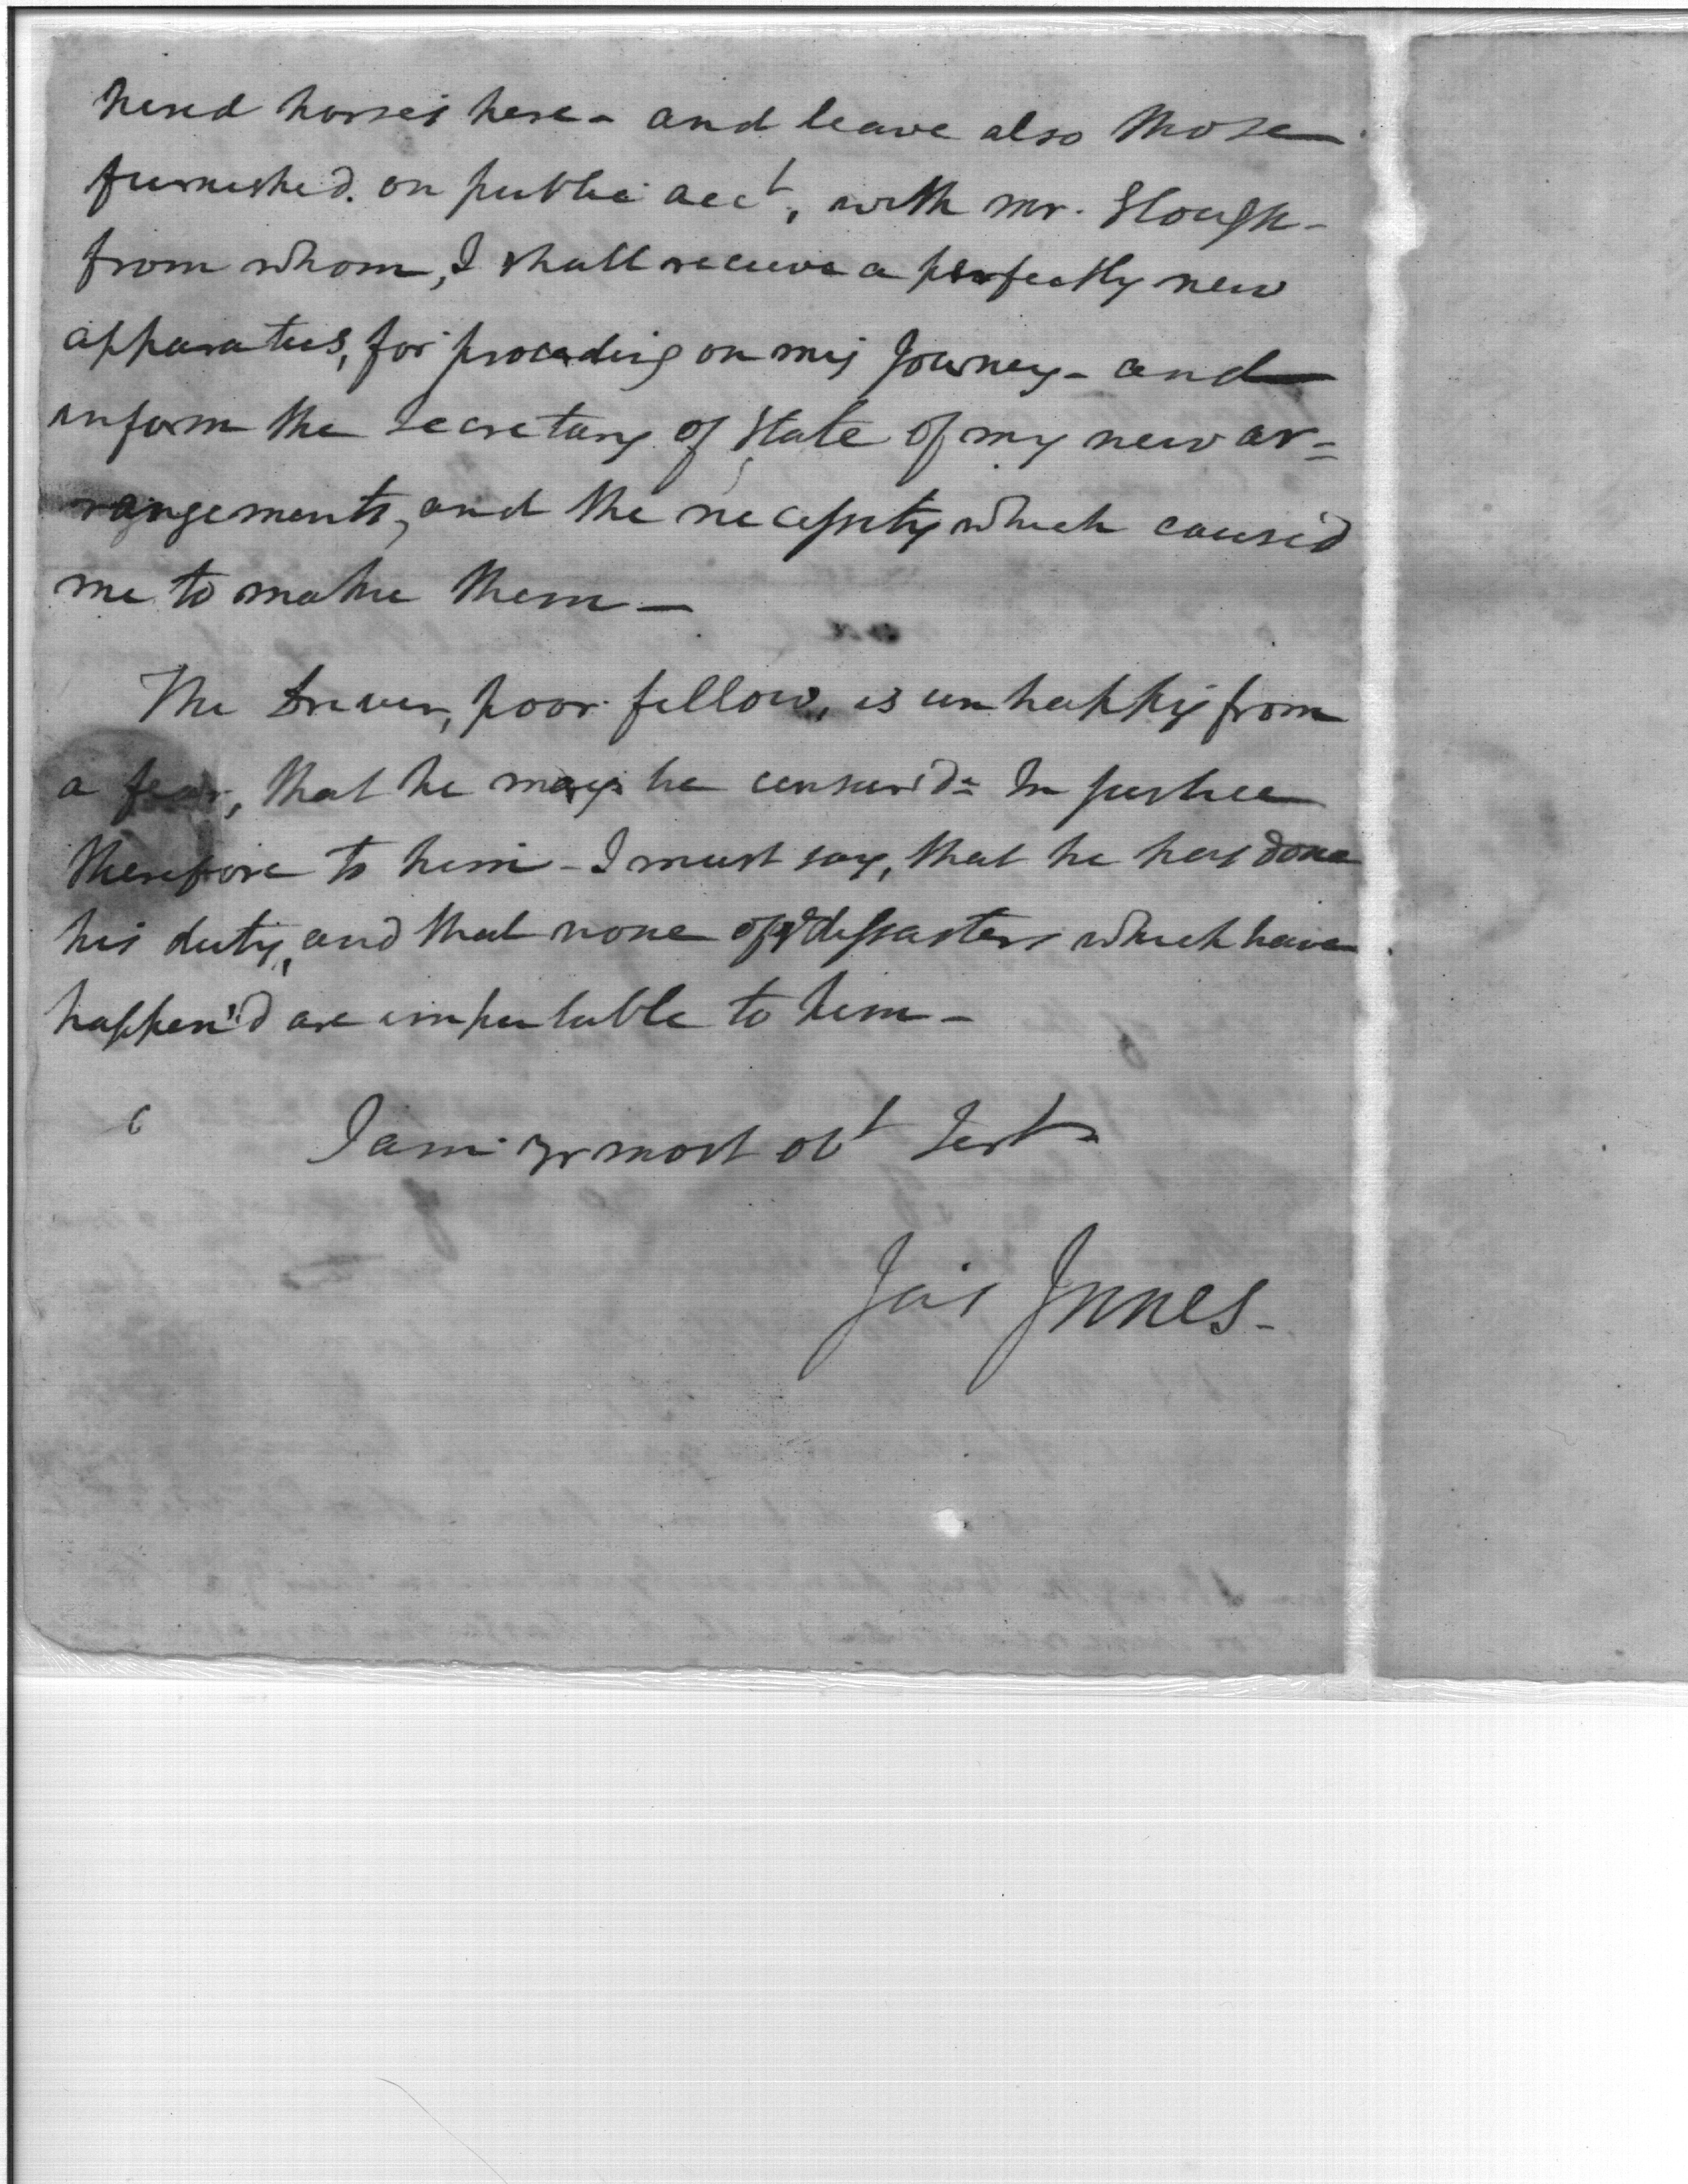 hired horses here - and leave also those
furnished. on public acct, with mr. Slough -
from whom, I shall receive a perfectly new
apparatus, for proceding on my Journey - and
inform the Secretary of State of my new ar=
rangements, and the necessity which caused
me to make them —
The Driver, poor fellow, is unhappy from
a fear, that he may be censur'd - In justice
therefore to him - I must say, that he has done
his duty, and that none of disasters which have
happen'd are imputable to him -
I am yr most obt Servt
Jas Innes -